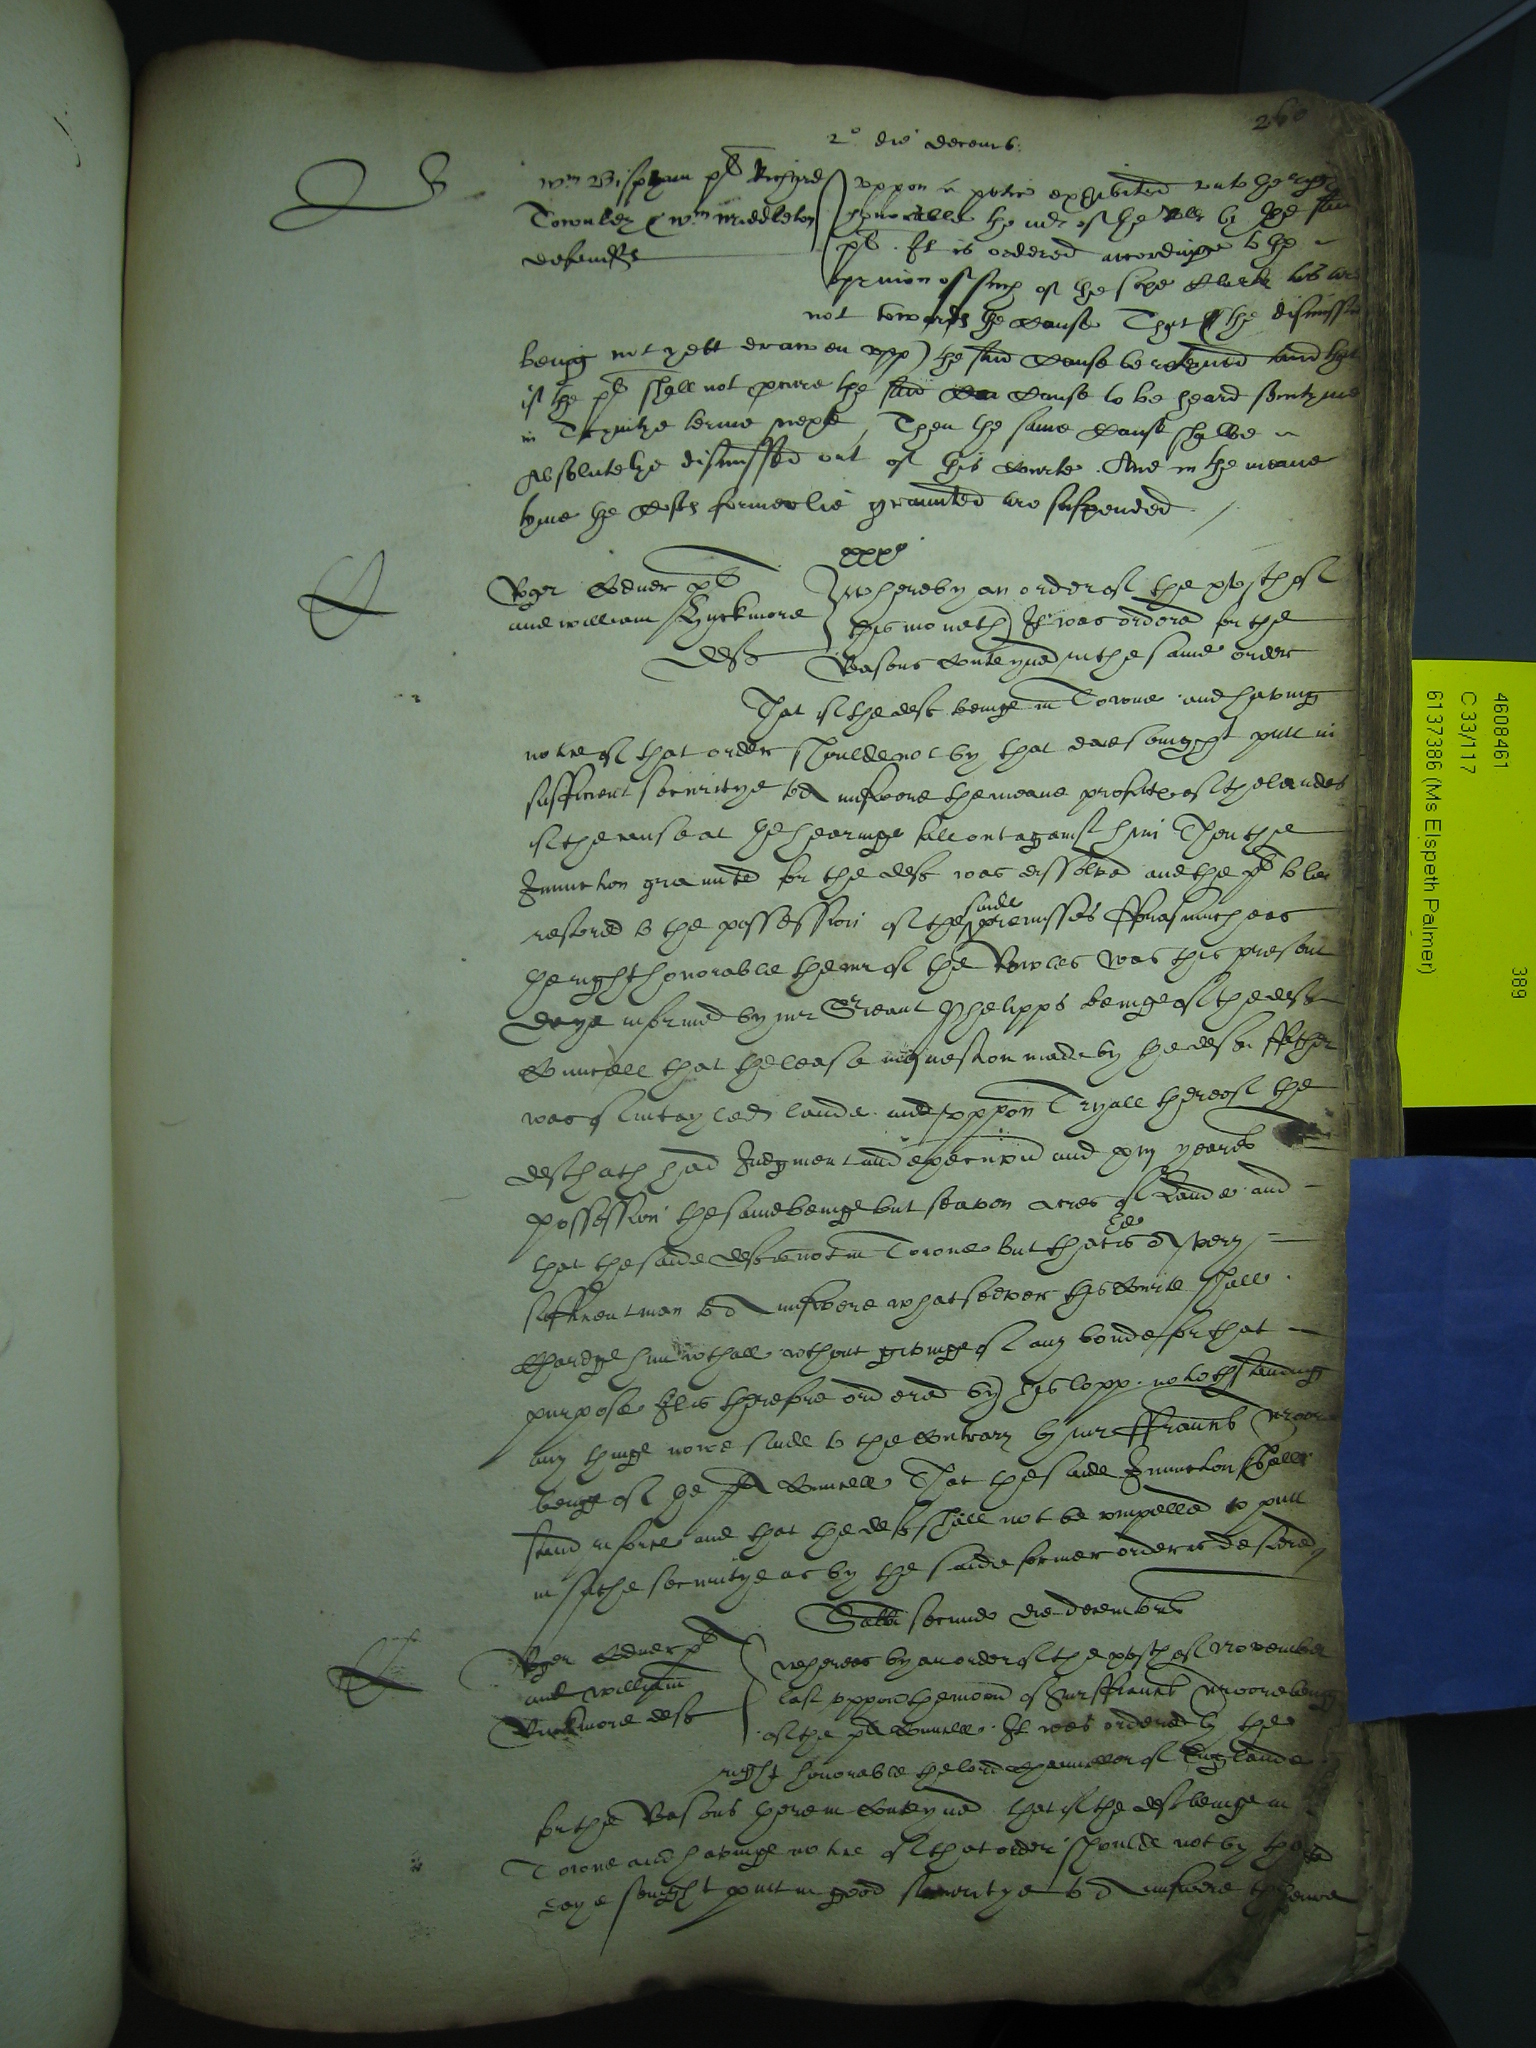 260
2° die decemb:
B
Wm Bispham pl Richard
Townley & Wm Middleton
defendts
uppon a petic exhibited unto the right
honorable the mr of the Rolls by the said
pl. It is ordered accordinge to the
opinion of such of the sixe Clerkes as are
not towards the cause That the dismission
being not yett drawen upp) the said Cause be reteyned and that
if the pl shall not procure the said Cause to be heard sometyme
in Trynitye terme next, Then the same Cause shalbe
Absolutelye dismissed out of this Courte. And in the meane
tyme the Costs formerlie graunted are suspended
Roger pl
and william Buckmore
deft
Whereby an order of the xxvth of
this moneth It was ordered for the
Reasons Conteyned in the same order
That if the deft beinge in Towne and having
notice of that order shoulde not by that daie sevenight putt in
sufficient securitye to answere the meane profitts of the landes
if the cause at the hearinge fall out against him Then the
Iniunction graunted for the deft was dissolved and the pl to be
restored to the possession of the saide premisses Fforasmuch as
the right honorable the mr of the Rowles was this present
daye informed by mr Sr̃eant Phelipps beinge of the defts
Councell that the lease in question made by the defts ffather
was of intayled lande and uppon Tryall thereof the
deft hath had Iudgment and execucion and yeares
possession the same beinge but seaven acres of Lande and
that the saide deft is not in Towne but that he is a very
sufficient man to answere whatsoever this Courte shall
Chardge him wthall wthout givinge of any bonde for that
purpose It is therefore ordered by his Lopp. notwthstanding
any thinge nowe saide to the Contrary by mr Ffraunts Moore
being of the pl Councell That the saide Iniunction shall
stand in force and that the deft shall not be compelled to putt
in suche securitye as by the saide former order is desired
Sabti secundo die decembris
Roger pl
and William
Buckmore deft
whereas by an order of the xxvth of November
last uppon the mocion of mr Ffraunts Moore being
of the pl Councell. It was ordered by the
right honorable the lord Chauncellor of Englande
for the Reasons therein Conteyned that if the deft beinge in
Towne and havinge notice of that order shoulde not by that
daye sevenight putt in good securitye to answere the meane
4608461
C 33/117
6137386 (Ms Elspeth Palmer)
389